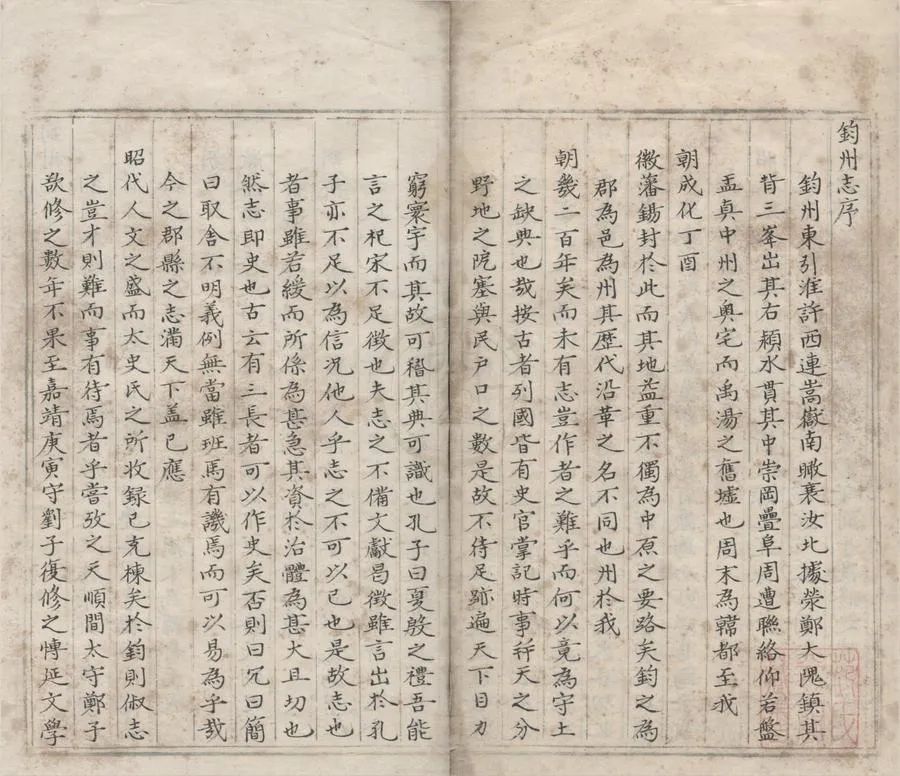 鈞州志序
鈞州東引淮許西連嵩嶽南瞰襄汝北據滎鄭大隗鎮其
背三峯出其右潁水貫其中崇岡疊阜周遭聯絡仰若盤
盂真中州之奧宅而禹湯之舊墟也周末為韓都至我
朝成化丁酉
徽藩錫封於此而其地益重不獨為中原之要路矣鈞之為
郡為邑為州其歷代沿革之名不同也州於我
朝幾二百年矣而未有志豈作者之難乎而何以竟為守土
之缺典也哉按古者列國皆有史官掌記時事並天之分
野地之阨塞與民戶口之數是故不待足跡遍天下目力
窮寰宇而其故可稽其典可識也孔子曰夏殷之禮吾能
言之杞宋不足徵也夫志之不備文獻曷徵雖言出於孔
子亦不足以為信況他人乎志之不可以已也是故志也
者事雖若緩而所係為甚急其資於治體為甚大且切也
然志即史也古云有三長者可以作史矣否則曰冗曰簡
曰取舍不明義例無當雖班馬有譏焉而可以易為乎哉
今之郡縣之志滿天下盖已應
昭代人文之盛而太史氏之所收録已充棟矣於鈞則俶志
之豈才則難而事有待焉者乎嘗攷之天順間太守鄭子
欲修之數年不果至嘉靖庚寅守劉子復修之慱延文學